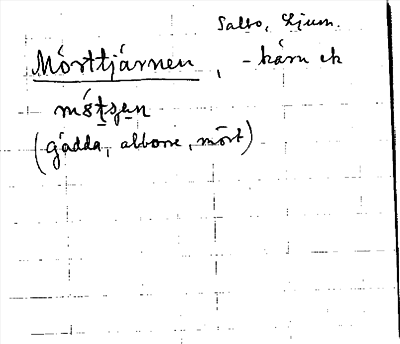 Salbo, Ljum.
Mörttjärnen, - kärn ek
mö́tʂɛn
(gädda, abborre, mört)